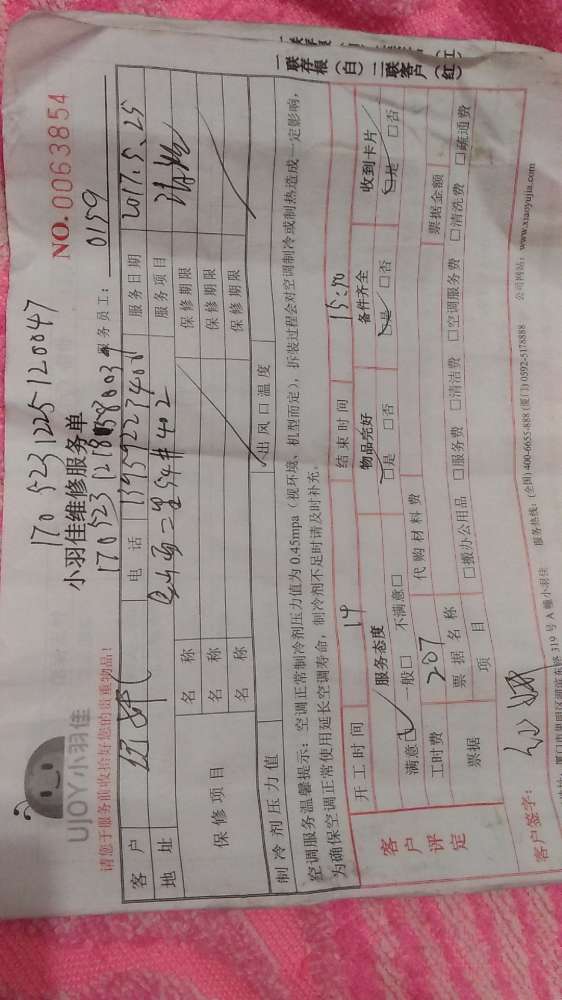 1705231225120047
UJOY小羽佳
小羽佳维修服务单
NO. 0063854
请您于服务前收拾好您的贵重物品!
服务员工: 0159
客户
电话 13959223401
服务日期 2017.5.25
地址
服务项目
保修项目
名称
保修期限
名称
保修期限
名称
保修期限
制冷剂压力值
出风口温度
空调服务温馨提示: 空调正常制冷剂压力值为0.45mpa(视环境、机型而定), 拆装过程会对空调制冷或制热造成一定影响,
为确保空调正常使用延长空调寿命, 制冷剂不足时请及时补充。
开工时间 14
结束时间 15:20
客户评定
服务态度
物品完好
备件齐全
收到卡片
满意☑ 一般□ 不满意□
☑是 □否
☑是 □否
☑是 □否
工时费 207
代购材料费
票据金额
票据
票据名称
项目
□搬办公用品 □服务费 □清洁费 □空调服务费 □清洗费 □疏通费
客户签字:
319号A幢小羽佳
服务热线: (全国) 400-6655-888 (厦门) 0592-5178888
公司网站: www.xiaoyujia.com
一联存根(白) 二联客户(红)